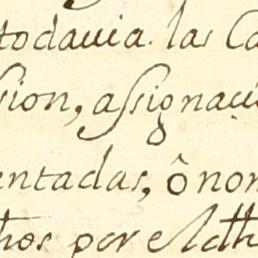 todauia las Ca
sion, assignaçi
entadas, ô nom
hos por el dth